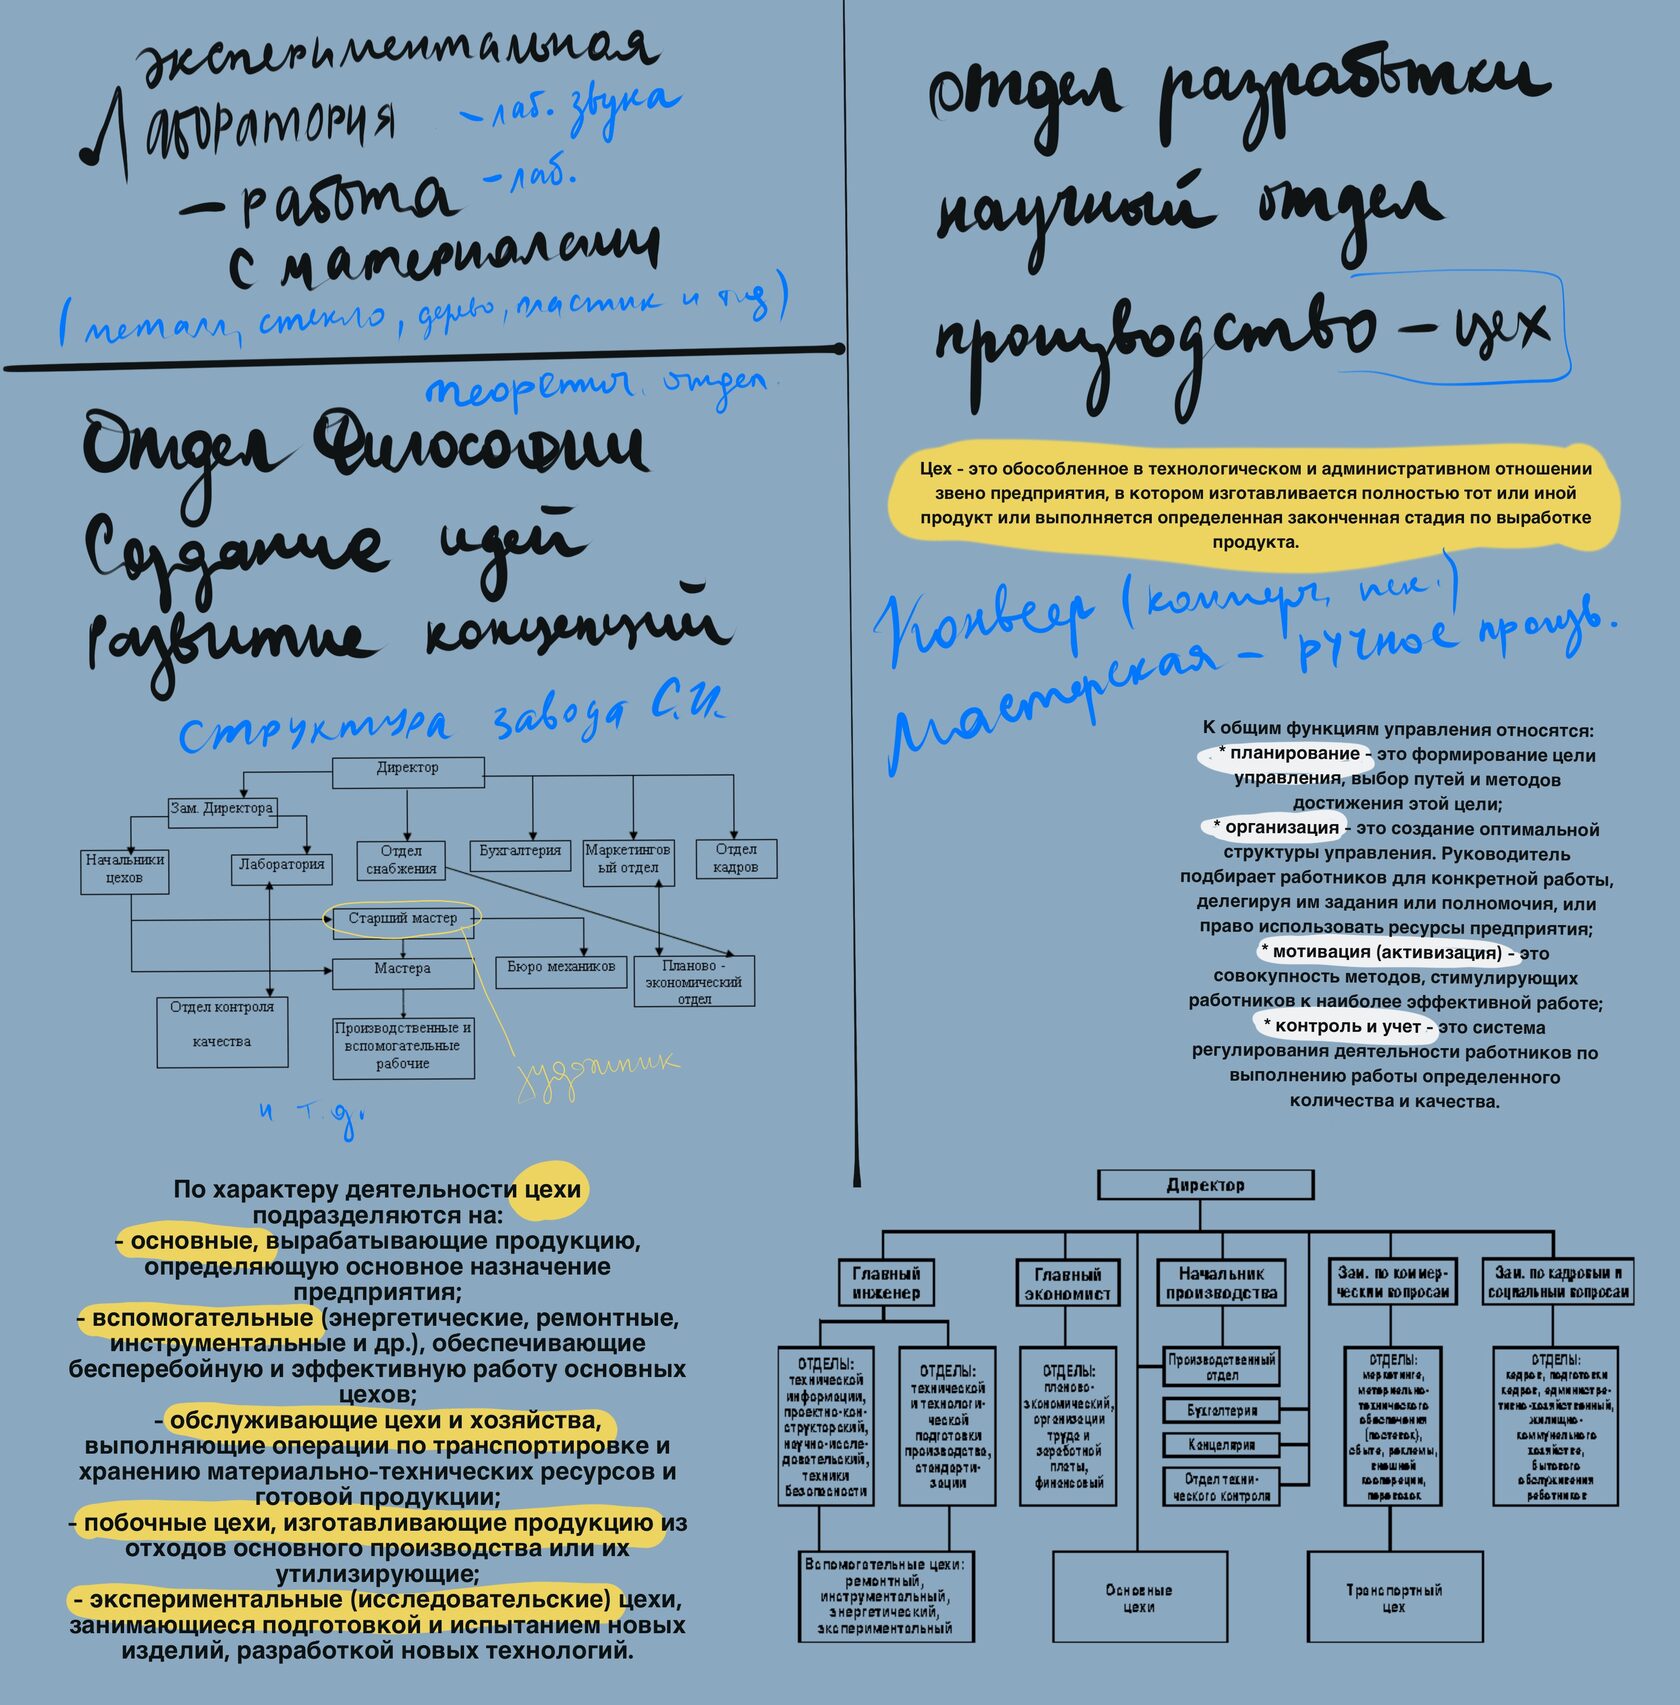 экспериментальная
Лаборатория
- лаб. звука
- работа
- лаб.
с материалами
(металл, стекло, дерево, пластик и т.д)
теоретич. отдел.
Отдел Философии
Создание идей
Развитие концепций
Структура завода С.И.
Директор
Зам. Директора
Начальники
цехов
Лаборатория
Отдел
снабжения
Бухгалтерия
Маркетингов
ый отдел
Отдел
кадров
Старший мастер
Мастера
Бюро механиков
Планово -
экономический
отдел
Отдел контроля
качества
Производственные и
вспомогательные
рабочие
художник
и т.д.
По характеру деятельности цехи
подразделяются на:
- основные, вырабатывающие продукцию,
определяющую основное назначение
предприятия;
- вспомогательные (энергетические, ремонтные,
инструментальные и др.), обеспечивающие
бесперебойную и эффективную работу основных
цехов;
- обслуживающие цехи и хозяйства,
выполняющие операции по транспортировке и
хранению материально-технических ресурсов и
готовой продукции;
- побочные цехи, изготавливающие продукцию из
отходов основного производства или их
утилизирующие;
- экспериментальные (исследовательские) цехи,
занимающиеся подготовкой и испытанием новых
изделий, разработкой новых технологий.
отдел разработки
научный отдел
производство - цех
Цех - это обособленное в технологическом и административном отношении
звено предприятия, в котором изготавливается полностью тот или иной
продукт или выполняется определенная законченная стадия по выработке
продукта.
Конвеер
Мастерская - ручное произв.
К общим функциям управления относятся:
* планирование - это формирование цели
управления, выбор путей и методов
достижения этой цели;
* организация - это создание оптимальной
структуры управления. Руководитель
подбирает работников для конкретной работы,
делегируя им задания или полномочия, или
право использовать ресурсы предприятия;
* мотивация (активизация) - это
совокупность методов, стимулирующих
работников к наиболее эффективной работе;
* контроль и учет - это система
регулирования деятельности работников по
выполнению работы определенного
количества и качества.
Директор
Главный
инженер
Главный
экономист
Начальник
производства
Зам. по коммер-
ческим вопросам
Зам. по кадровым и
социальным вопросам
ОТДЕЛЫ:
технической
информации,
проектно-кон-
структорский,
научно-иссле-
довательский,
техники
безопасности
ОТДЕЛЫ:
технической
и технологи-
ческой
подготовки
производства,
стандарти-
зации
ОТДЕЛЫ:
планово-
экономический,
организации
труда и
заработной
платы,
финансовый
Производственный
отдел
Бухгалтерия
Канцелярия
Отдел техни-
ческого контроля
ОТДЕЛЫ:
маркетинга,
материально-
технического
обеспечения
(поставок),
сбыта, рекламы,
внешней
кооперации,
перевозок
ОТДЕЛЫ:
кадров, подготовки
кадров, администра-
тивно-хозяйственный,
жилищно-
коммунального
хозяйства,
бытового
обслуживания
работников
Вспомогательные цехи:
ремонтный,
инструментальный,
энергетический,
экспериментальный
Основные
цехи
Транспортный
цех